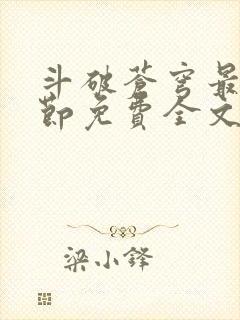 斗破苍穹最
节免费全文
梁小锋